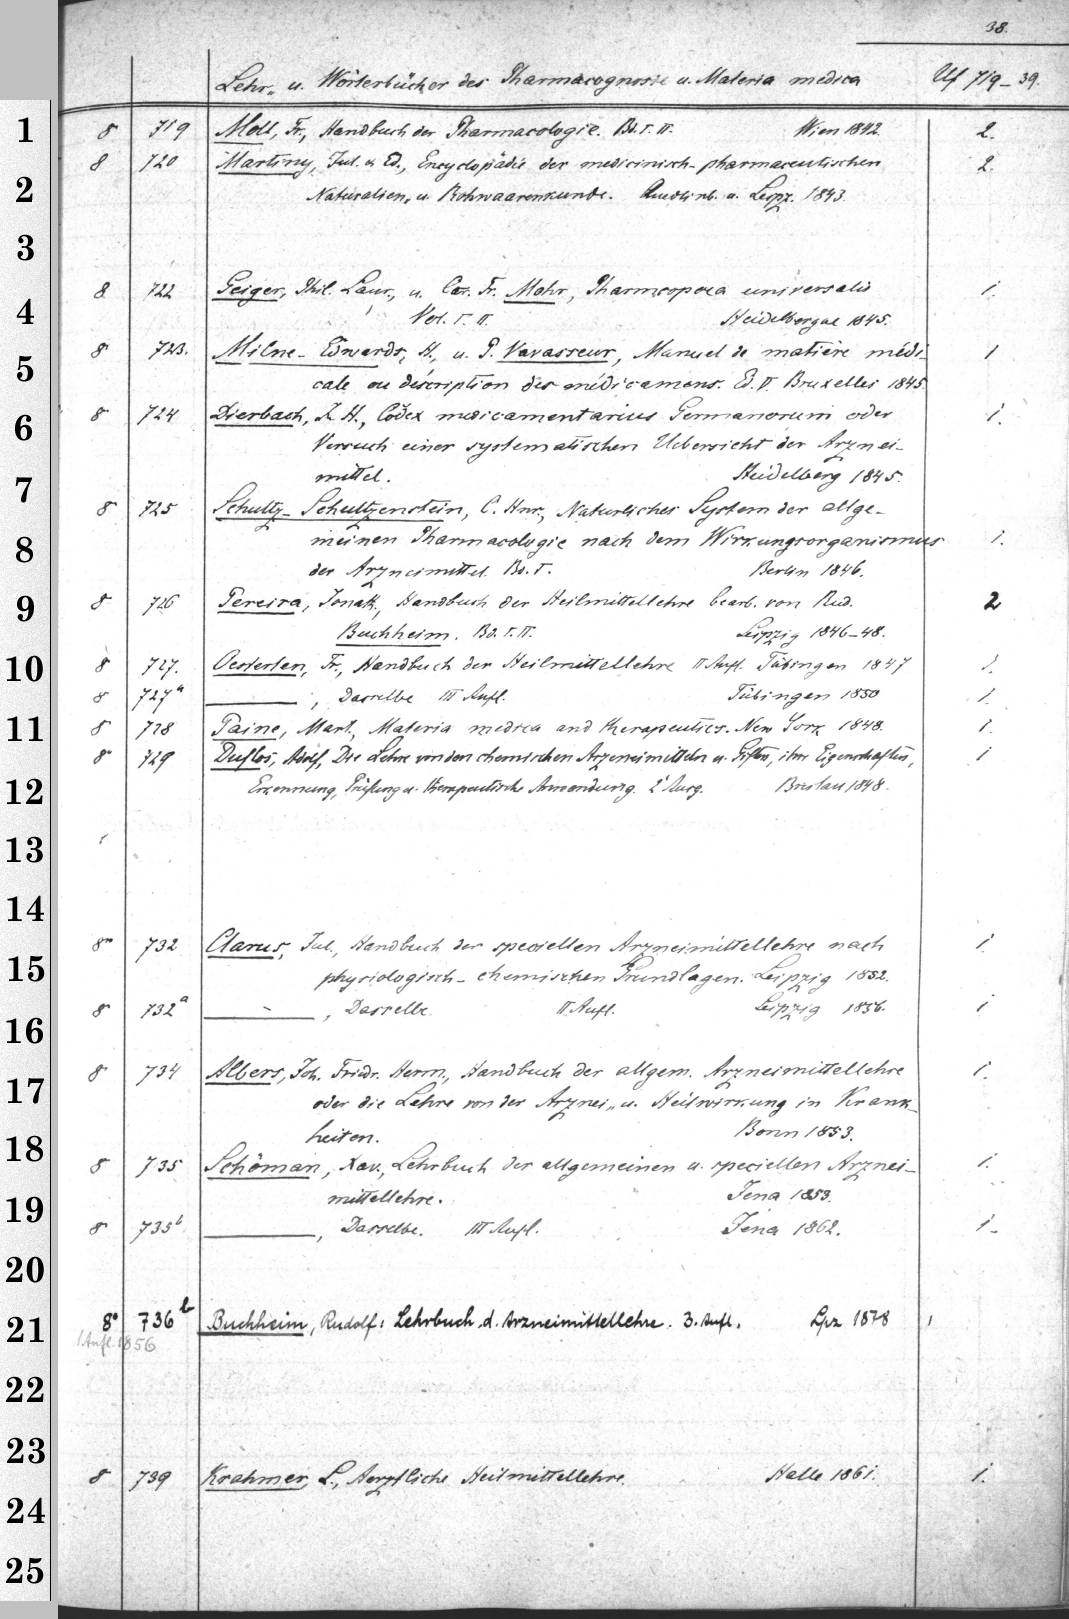 38.
Lehr- u. Wörterbücher des Pharmacognosie u. Materia medica Uf 719-39.
1
8 719 Moll, Fr., Handbuch der Pharmacologie. Bd. I. II. Wien 1842. 2.
8 720 Martiny, Jul. u. Ed., Encyclopädie der medicinisch-pharmaceutischen 2.
2
Naturalien- u. Rohwaarenkunde. Quedlinb. u. Leipz. 1843.
3
8 722 Geiger, Phil. Laur., u. Car. Fr. Mohr, Pharmacopoea universalis 1.
4
Vol. I. II. Heidelbergae 1845.
8 723. Milne-Edwards, H., u. P. Vavasseur, Manuel de matière médi- 1
5
cale ou déscription des médicamens. Ed. II. Bruxelles 1845
8 724 Dierbach, J. H., Codex medicamentarius Germanorum oder 1.
6
Versuch einer systematischen Uebersicht der Arznei-
7
mittel. Heidelberg 1845.
8 725 Schultz-Schultzenstein, C. Hnr., Naturliches System der allge-
8
meinen Pharmacologie nach dem Wirkungsorganismus 1.
der Arzneimittel. Bd. I. Berlin 1846.
9
8 726 Pereira, Jonath., Handbuch der Heilmittellehre bearb. von Rud. 2
Buchheim. Bd. I. II. Leipzig 1846-48.
10
8 727. Oesterlen, Fr., Handbuch der Heilmittellehre II Aufl. Tübingen 1847 1.
8 727a ———, Dasselbe III Aufl. Tübingen 1850 1.
11
8 728 Paine, Mart., Materia medica and therapeutics. New York 1848. 1.
8 729 Duflos, Adolf, Die Lehre von den chemischen Arzeneimitteln u. Giften, ihre Eigenschaften, 1
12
Erkennung, Prüfung u. therapeutische Anwendung. 2 Ausg. Breslau 1848.
13
14
8 732 Clarus, Jul., Handbuch der speciellen Arzneimittellehre nach 1
15
physiologisch-chemischen Grundlagen. Leipzig 1852.
8 732a ———, Dasselbe II Aufl. Leipzig 1856. 1
16
8 734 Albers, Joh. Friedr. Herm., Handbuch der allgem. Arzneimittellehre 1.
17
oder die Lehre von der Arznei- u. Heilwirkung in Krank-
heiten. Bonn 1853.
18
8 735 Schöman, Xav., Lehrbuch der allgemeinen u. speciellen Arznei- 1.
19
mittellehre. Jena 1853.
8 735b ———, Dasselbe. III Aufl. Jena 1862. 1-
20
8° 736b Buchheim, Rudolf: Lehrbuch d. Arzneimittellehre. 3. Aufl. Lpz 1878 1
21
1 Aufl. 1856
22
23
8 739 Krahmer, L., Aerztliche Heilmittellehre. Halle 1861. 1.
24
25